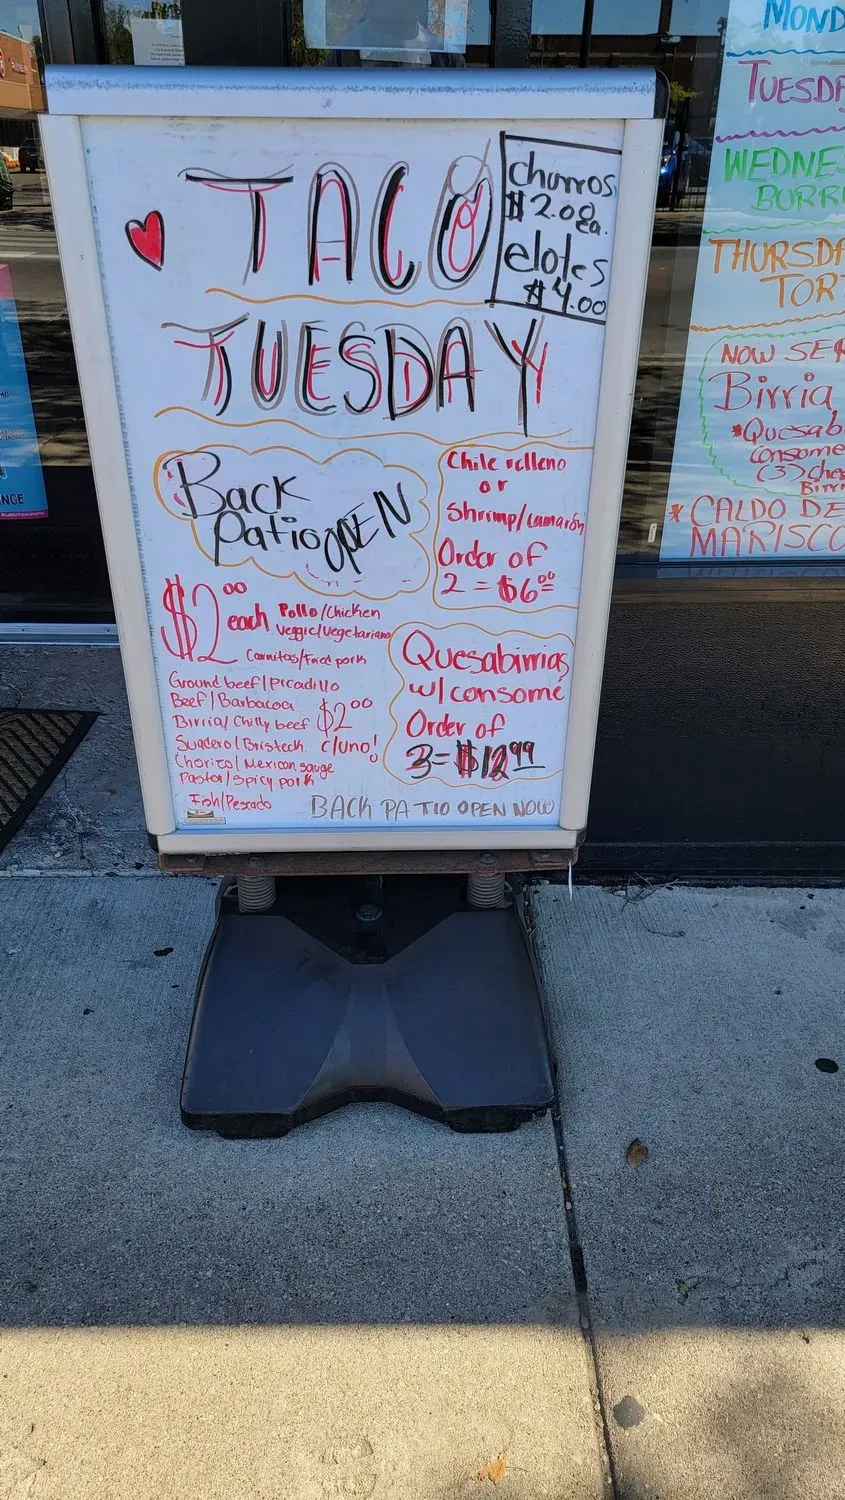 TACO
TUESDAY
churros
$2.00
ea.
elotes
$4.00
Back
Patio OPEN
Chile relleno
or
Shrimp/camarón
Order of
2 = $6.00
$2.00 each Pollo/Chicken
Veggie/Vegetariano
Carnitas/Fried pork
Ground beef/Picadillo
Beef/Barbacoa $2.00
Birria/Chilly beef
Suadero/Bristeck c/uno!
Chorizo/Mexican sauge
Pastor/Spicy pork
Fish/Pescado
Quesabirrias
w/consomé
Order of
3=$12.99
BACK PATIO OPEN NOW
MOND
TUESDA
WEDNE
BURR
THURSDA
TOR
NOW SER
Birria
*Quesab
consome
(3) che
Birri
* CALDO DE
MARISCO
NCE